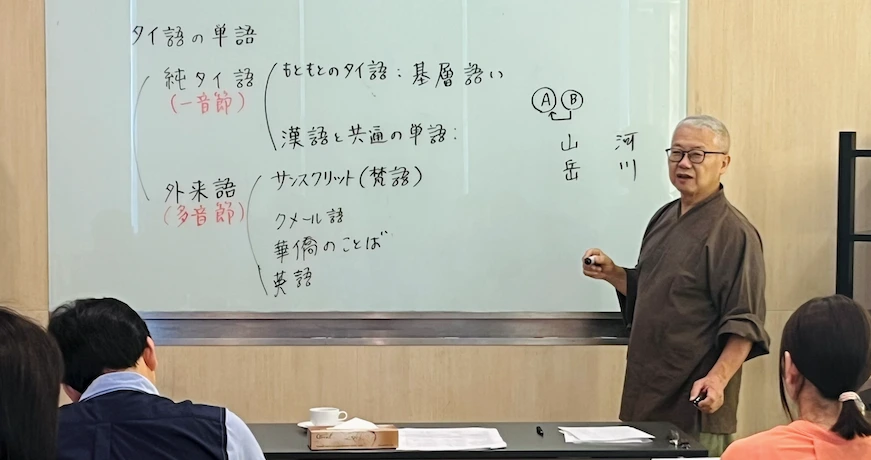 タイ語の単語
純タイ語
(一音節)
もともとのタイ語：基層語い
漢語と共通の単語：
外来語
(多音節)
サンスクリット(梵語)
クメール語
華僑のことば
英語
A B
山岳
河川